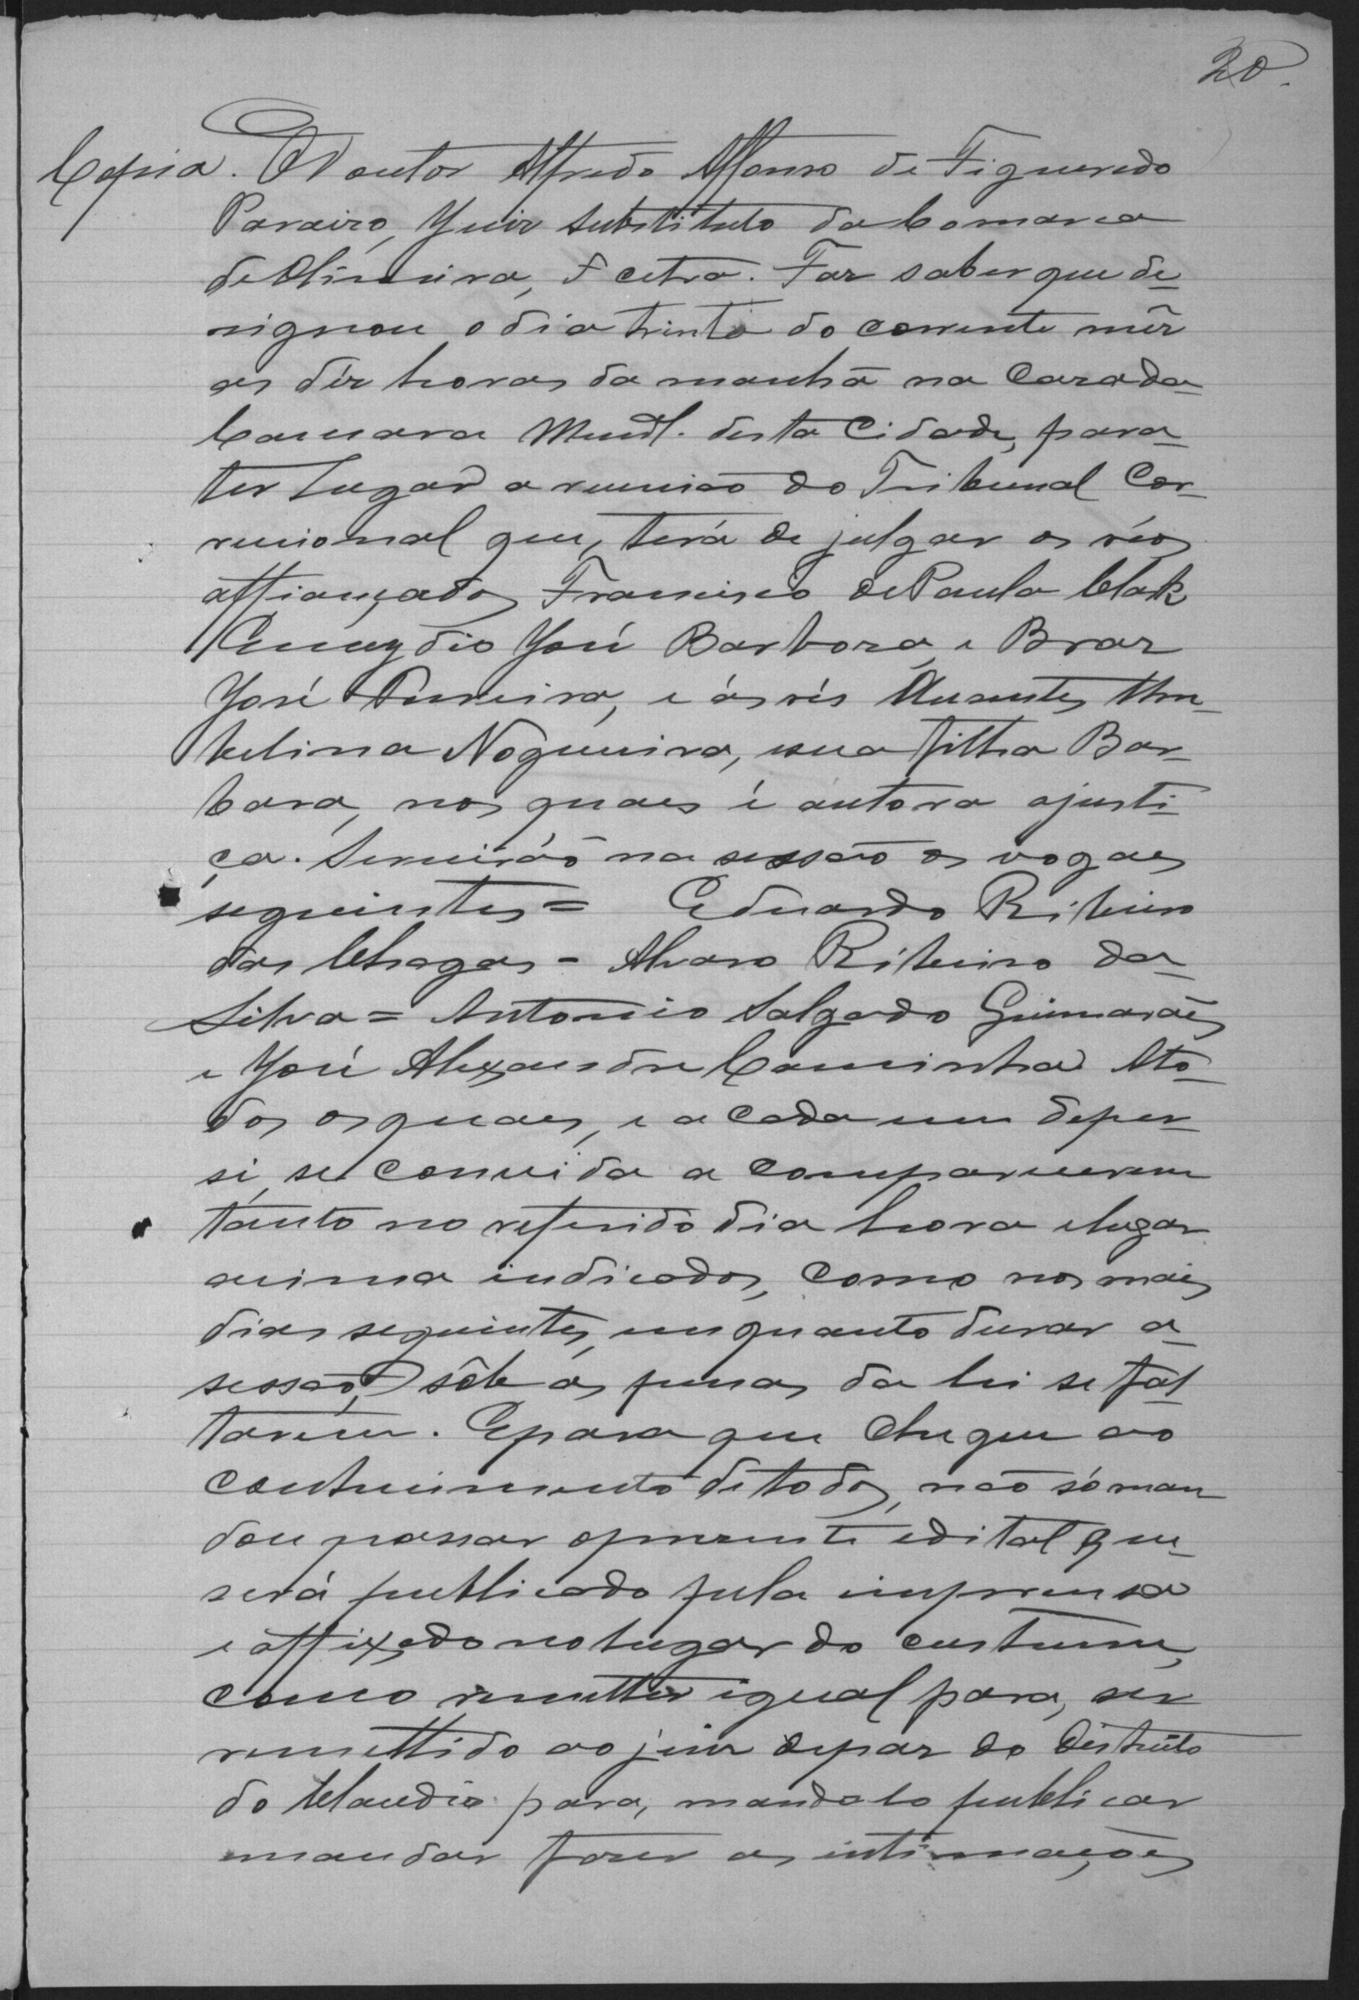 20.
Copia. O Doutor Alfredo Affonso de Figueredo
Paraizo, Juiz substituto da Comarca
de Oliveira, Et cetra. Faz saber que de-
signou o dia trinta do corrente mêz
as déz horas da manhã na Caza da
Camara Munl. desta Cidade, para
ter Lugar a reunião do Tribunal Cor-
recional que, terá de julgar os réos
affiançados Francisco de Paula Clak
Emygdio José Barboza, e Braz
José Pereira, e ás rés Auzentes Um-
belina Nogueira, e sua filha Bar-
bara, nos quaes é autora a justi-
ça. Servirão na sessão os vogaes
seguintes = Eduardo Ribeiro
das Chagas = Alvaro Ribeiro da
Silva = Antonio Salgado Guimarães
e José Alexandre Caminha Ato-
dos os quaes, e a cada um deper-
si, se convida a comparecerem
tanto no referido dia hora e lugar
acima indicados, como nos mais
dias seguintes, emquanto durar a
sessão, sôb as penas da lei se fal-
tarem. E para que chegue ao
conhecimento de todos, não só man
dou passar o prezente edital que
será publicado pela imprensa
e affixado no lugar do custume,
como remetter igual para, ser
remettido ao juiz depaz do Districto
do Claudio para, mandalo publicar
mandar fazer as intimações